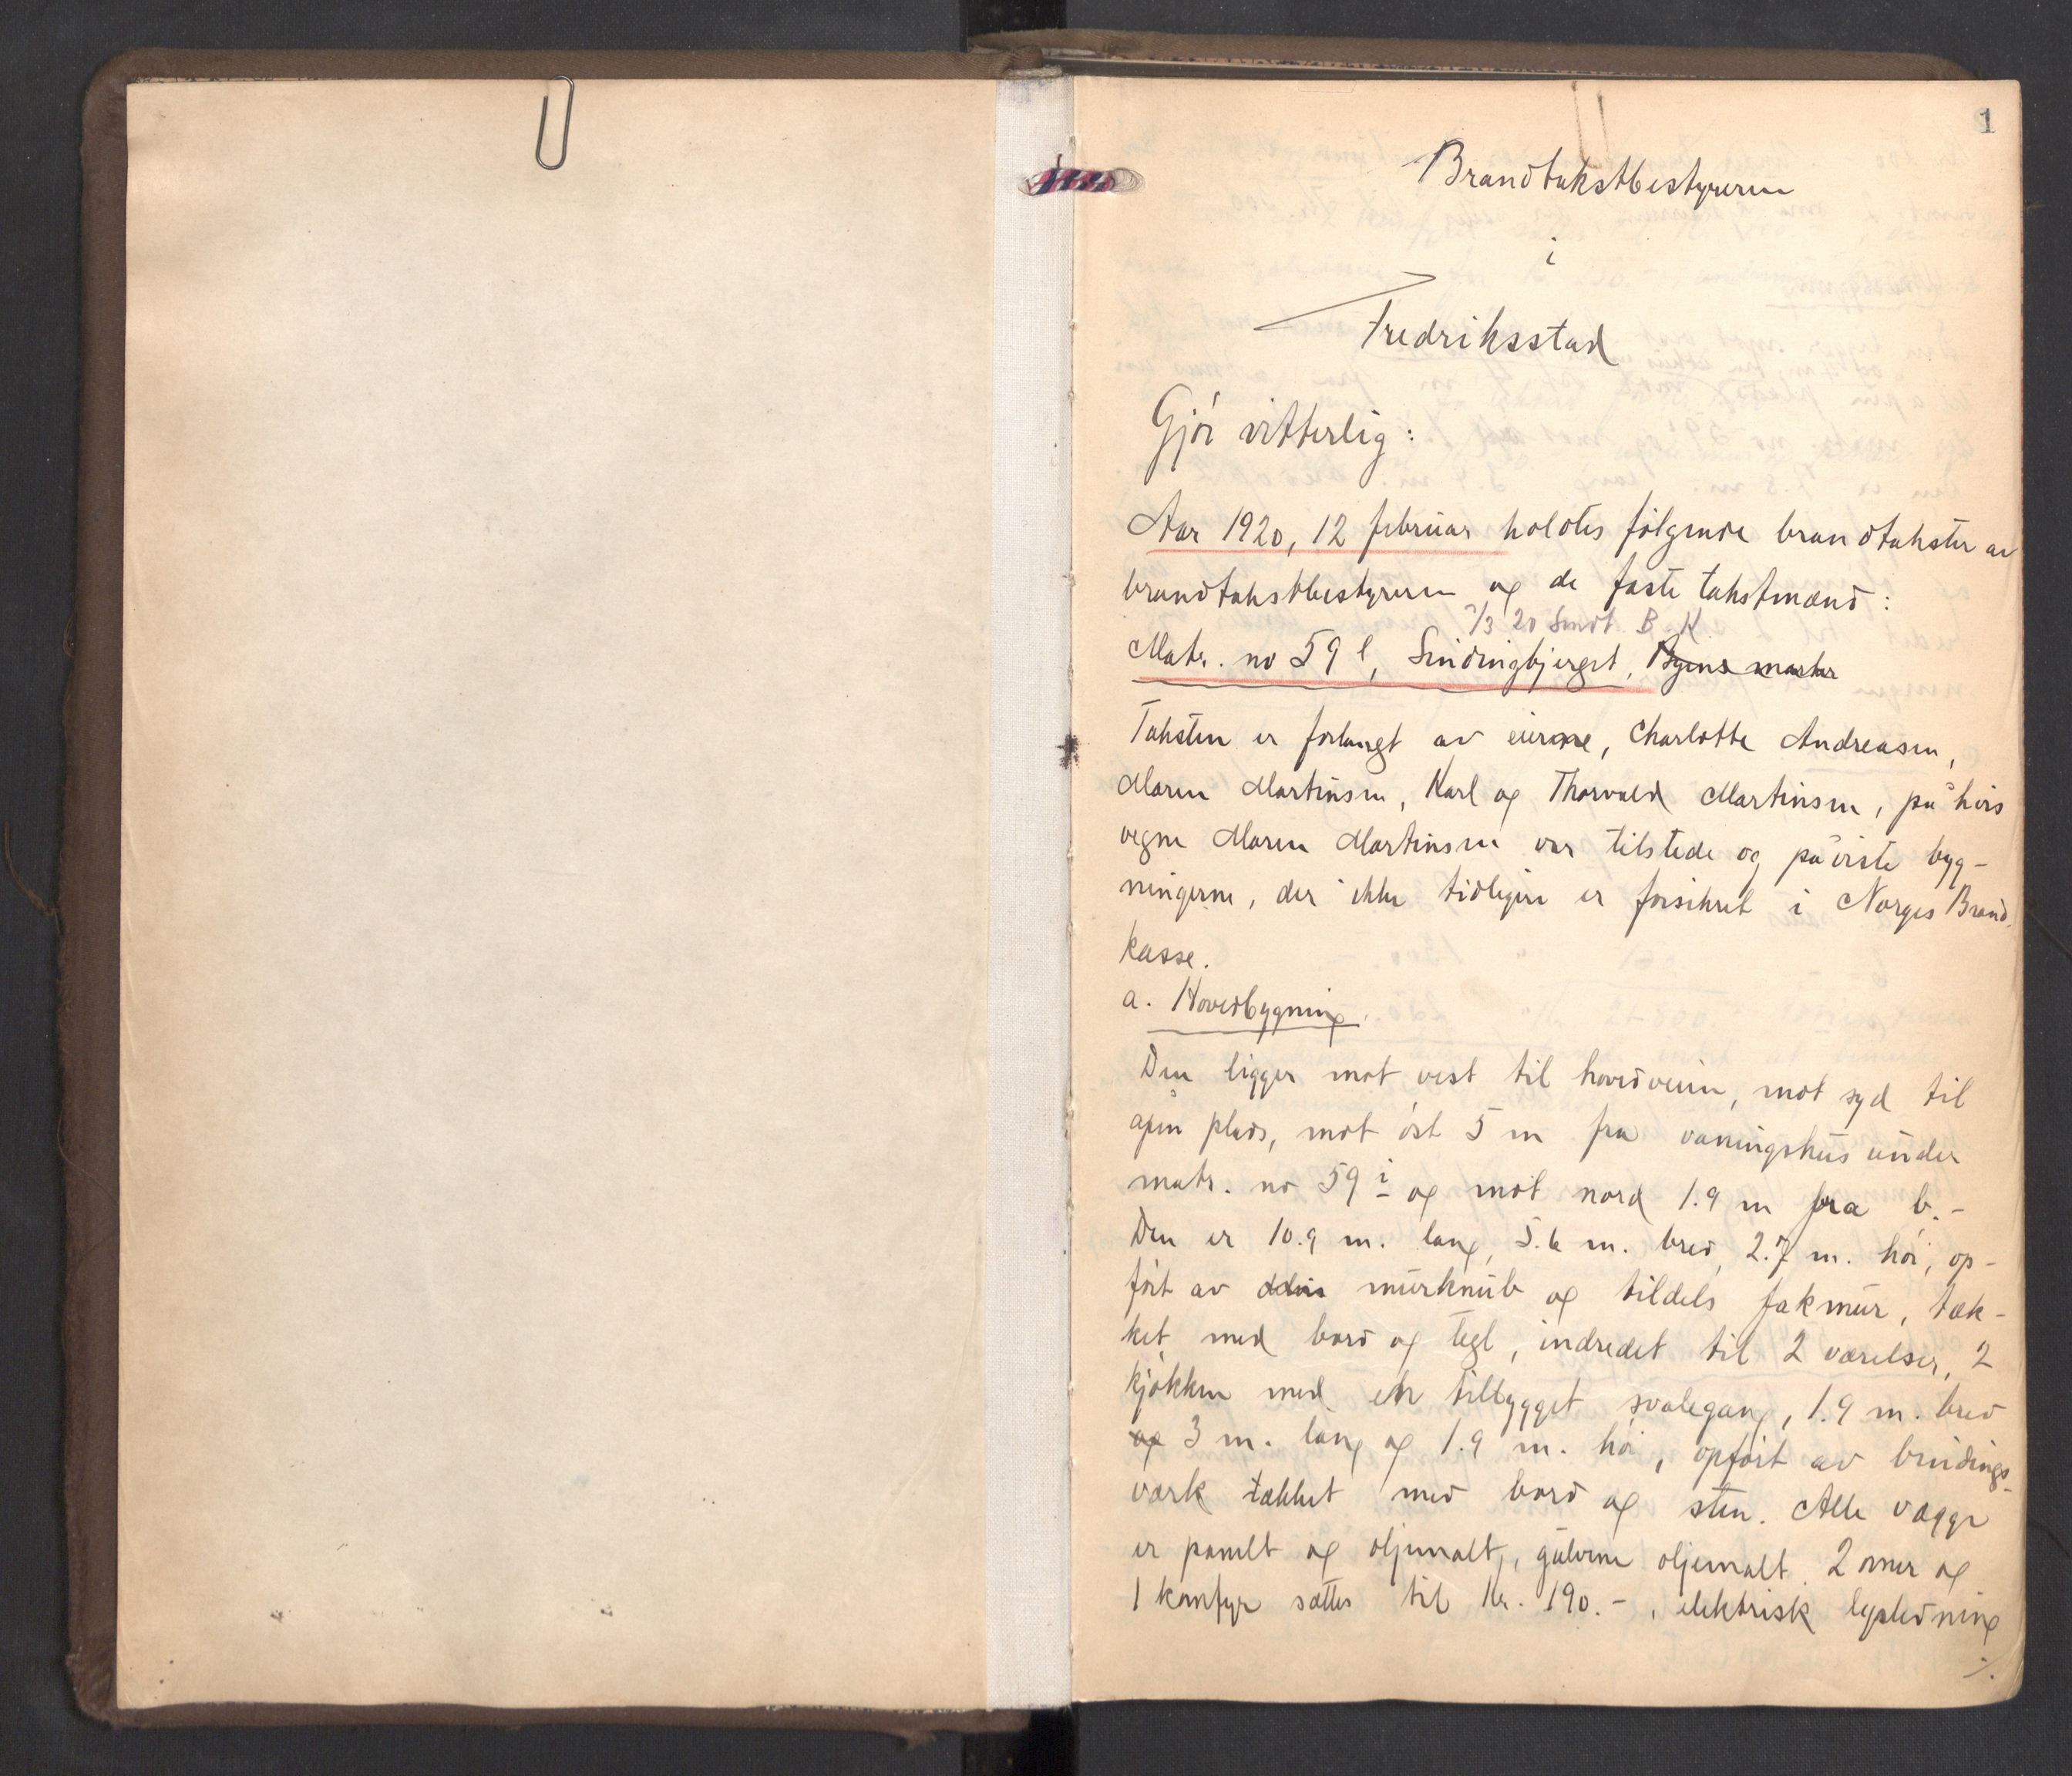 1
Brandtakstbestyreren
i
Fredriksstad
Gjör vitterlig:
Aar 1920, 12 februar holdtes følgende brandtakster av
brandtakstbestyreren og de faste takstmænd:
7/3 20 Sendt B. K.
Matr. no 59 l, Sindingbjerget, Byens marker
Taksten er forlangt av eierne, Charlotte Andreasen,
Maren Martinsen, Karl og Thorvald Martinsen, på hvis
vegne Maren Martinsen var tilstede og påviste byg-
ningerne, der ikke tidligere er forsikret i Norges Brand
kasse.
a. Hovedbygning.
Den ligger mot vest til hovedveien, mot syd til
åpen plads, mot öst 5 m fra vaningshus under
matr. no 59 i og mot nord 1.9 m fra b.-
Den er 10.9 m. lang, 5.6 m. bred, 2.7 m. höi, op-
fört av murknub og tildels fakmur, tæk-
ket med bord og tegl, indredet til 2 værelser, 2
kjökken med en tilbygget svalegang, 1.9 m. bred
og 3 m. lang og 1.9 m. höi, opfört av bindings-
værk tækket med bord og sten. Alle vægger
er panelt og oljemalt, gulvene oljemalt. 2 ovner og
1 komfyr sættes til kr. 190.-, elektrisk lysledning
./.